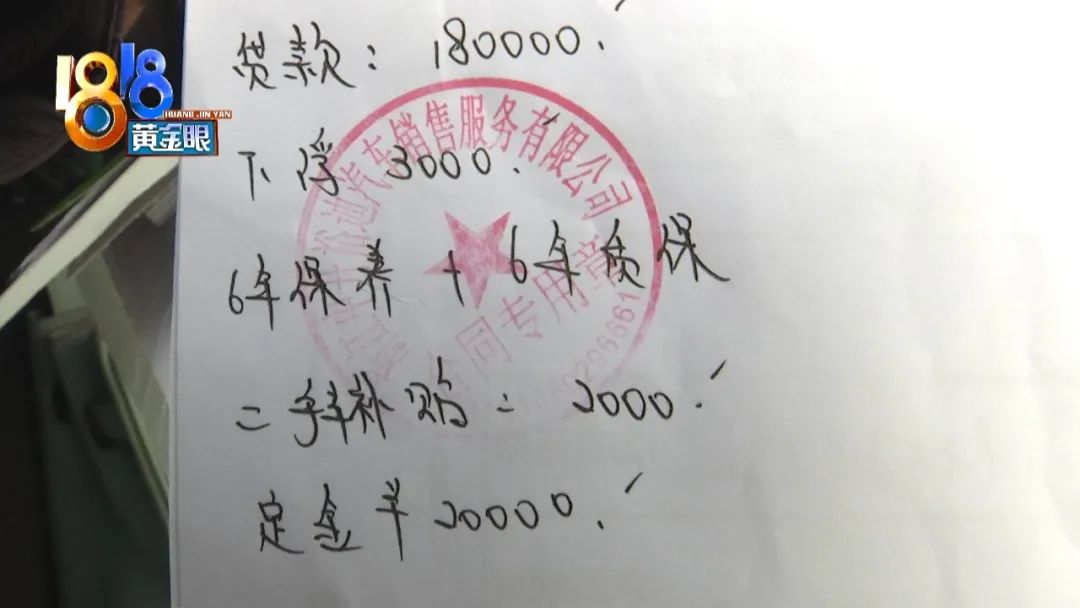 1818
HUANG JIN YAN
黄金眼
贷款：180000.
下浮 3000.
6年保养 + 6年质保
二手补贴 = 2000.
定金¥20000.
裕迪汽车销售服务有限公司
合同专用章